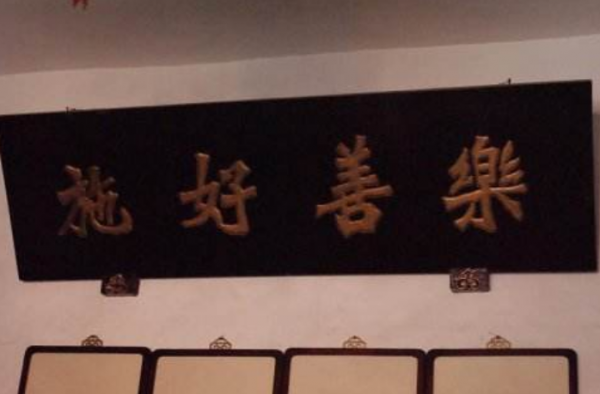 樂善好施